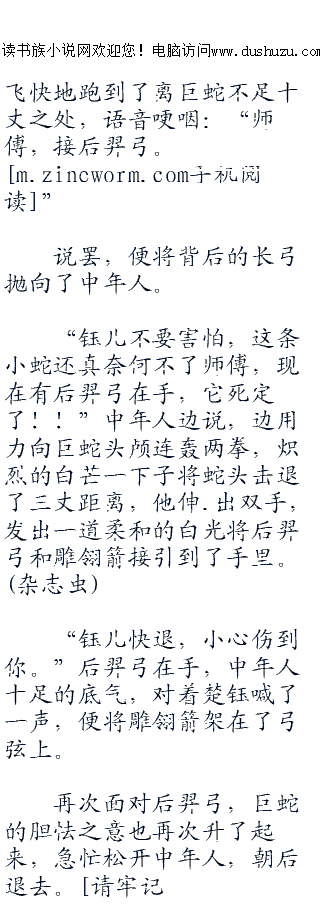 读书族小说网欢迎您！电脑访问www.dushuzu.com
飞快地跑到了离巨蛇不足十
丈之处，语音哽咽：“师
傅，接后羿弓。
[m.zineworm.com手机阅
读]”
说罢，便将背后的长弓
抛向了中年人。
“钰儿不要害怕，这条
小蛇还真奈何不了师傅，现
在有后羿弓在手，它死定
了！！”中年人边说，边用
力向巨蛇头颅连轰两拳，炽
烈的白芒一下子将蛇头击退
了三丈距离，他伸.出双手，
发出一道柔和的白光将后羿
弓和雕翎箭接引到了手里。
(杂志虫)
“钰儿快退，小心伤到
你。”后羿弓在手，中年人
十足的底气，对着楚钰喊了
一声，便将雕翎箭架在了弓
弦上。
再次面对后羿弓，巨蛇
的胆怯之意也再次升了起
来，急忙松开中年人，朝后
退去。[请牢记